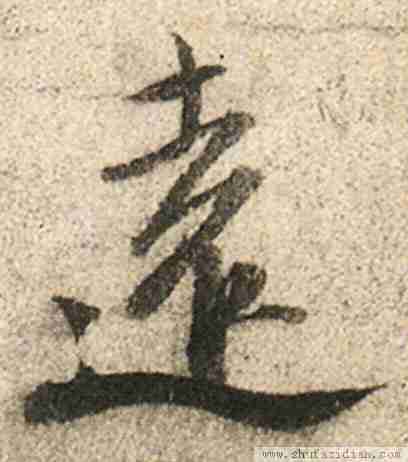 遠
www.shufazidian.com